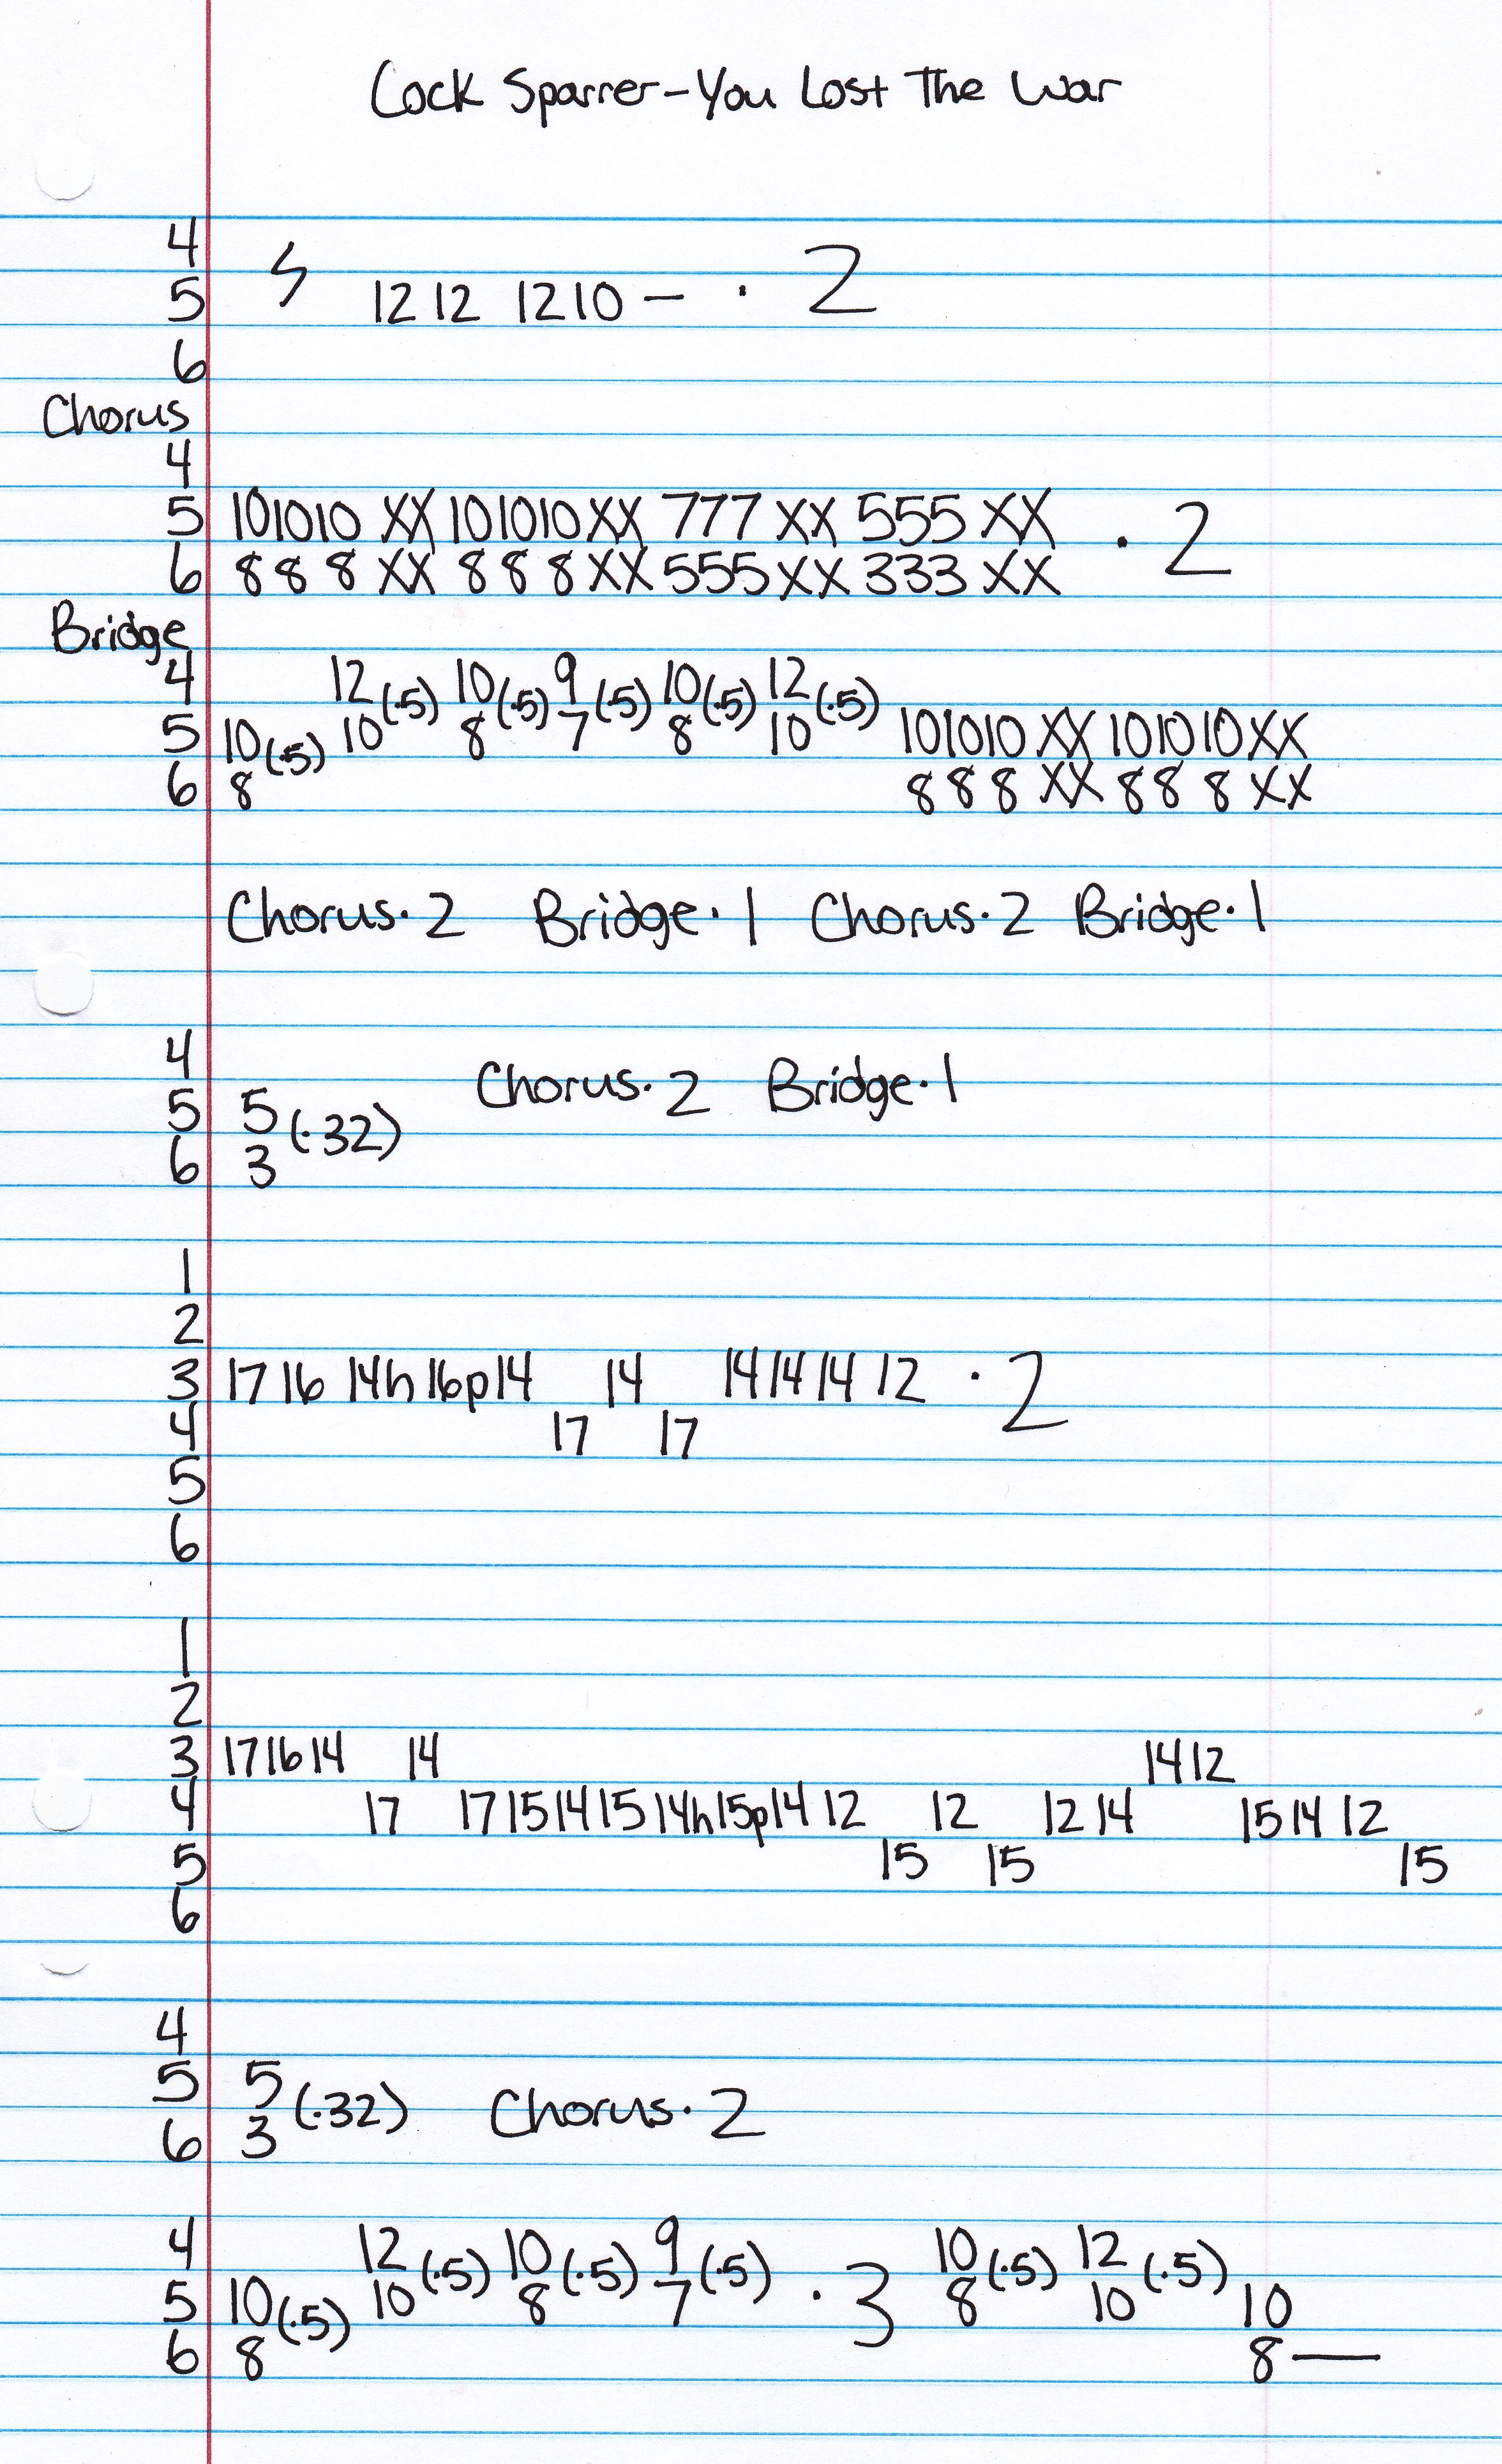 Cock Sparrer-You Lost The War
4
5 12 12 12 10 — · 2
6
Chorus
4
5 101010 XX 101010 XX 777 XX 555 XX · 2
6 8 8 8 XX 8 8 8 XX 555 XX 333 XX
Bridge
4 12(·5) 10(·5) 9(·5) 10(·5) 12(·5)
5 10(·5) 10 8 7 8 10 101010 XX 101010 XX
6 8 8 8 8 XX 8 8 8 XX
Chorus·2 Bridge·1 Chorus·2 Bridge·1
4 Chorus·2 Bridge·1
5 5(·32)
6 3
1
2
3 17 16 14h16p14 14 14 14 14 12 · 2
4 17 17
5
6
1
2
3 17 16 14 14 14 12
4 17 17 15 14 15 14h15p14 12 12 12 14 15 14 12
5 15 15 15
6
4
5 5(·32) Chorus·2
6 3
4 12(·5) 10(·5) 9(·5) · 3 10(·5) 12(·5)
5 10(·5) 10 8 7 8 10 10
6 8 8—